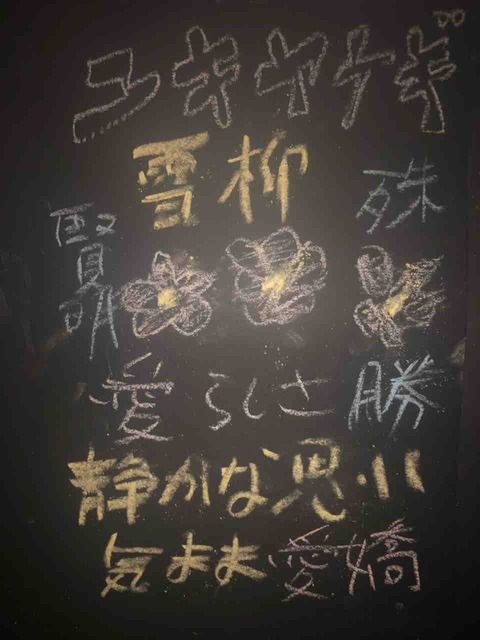 ユキヤナギ
雪柳
殊勝
賢明
愛らしさ
静かな思い
気まま愛嬌